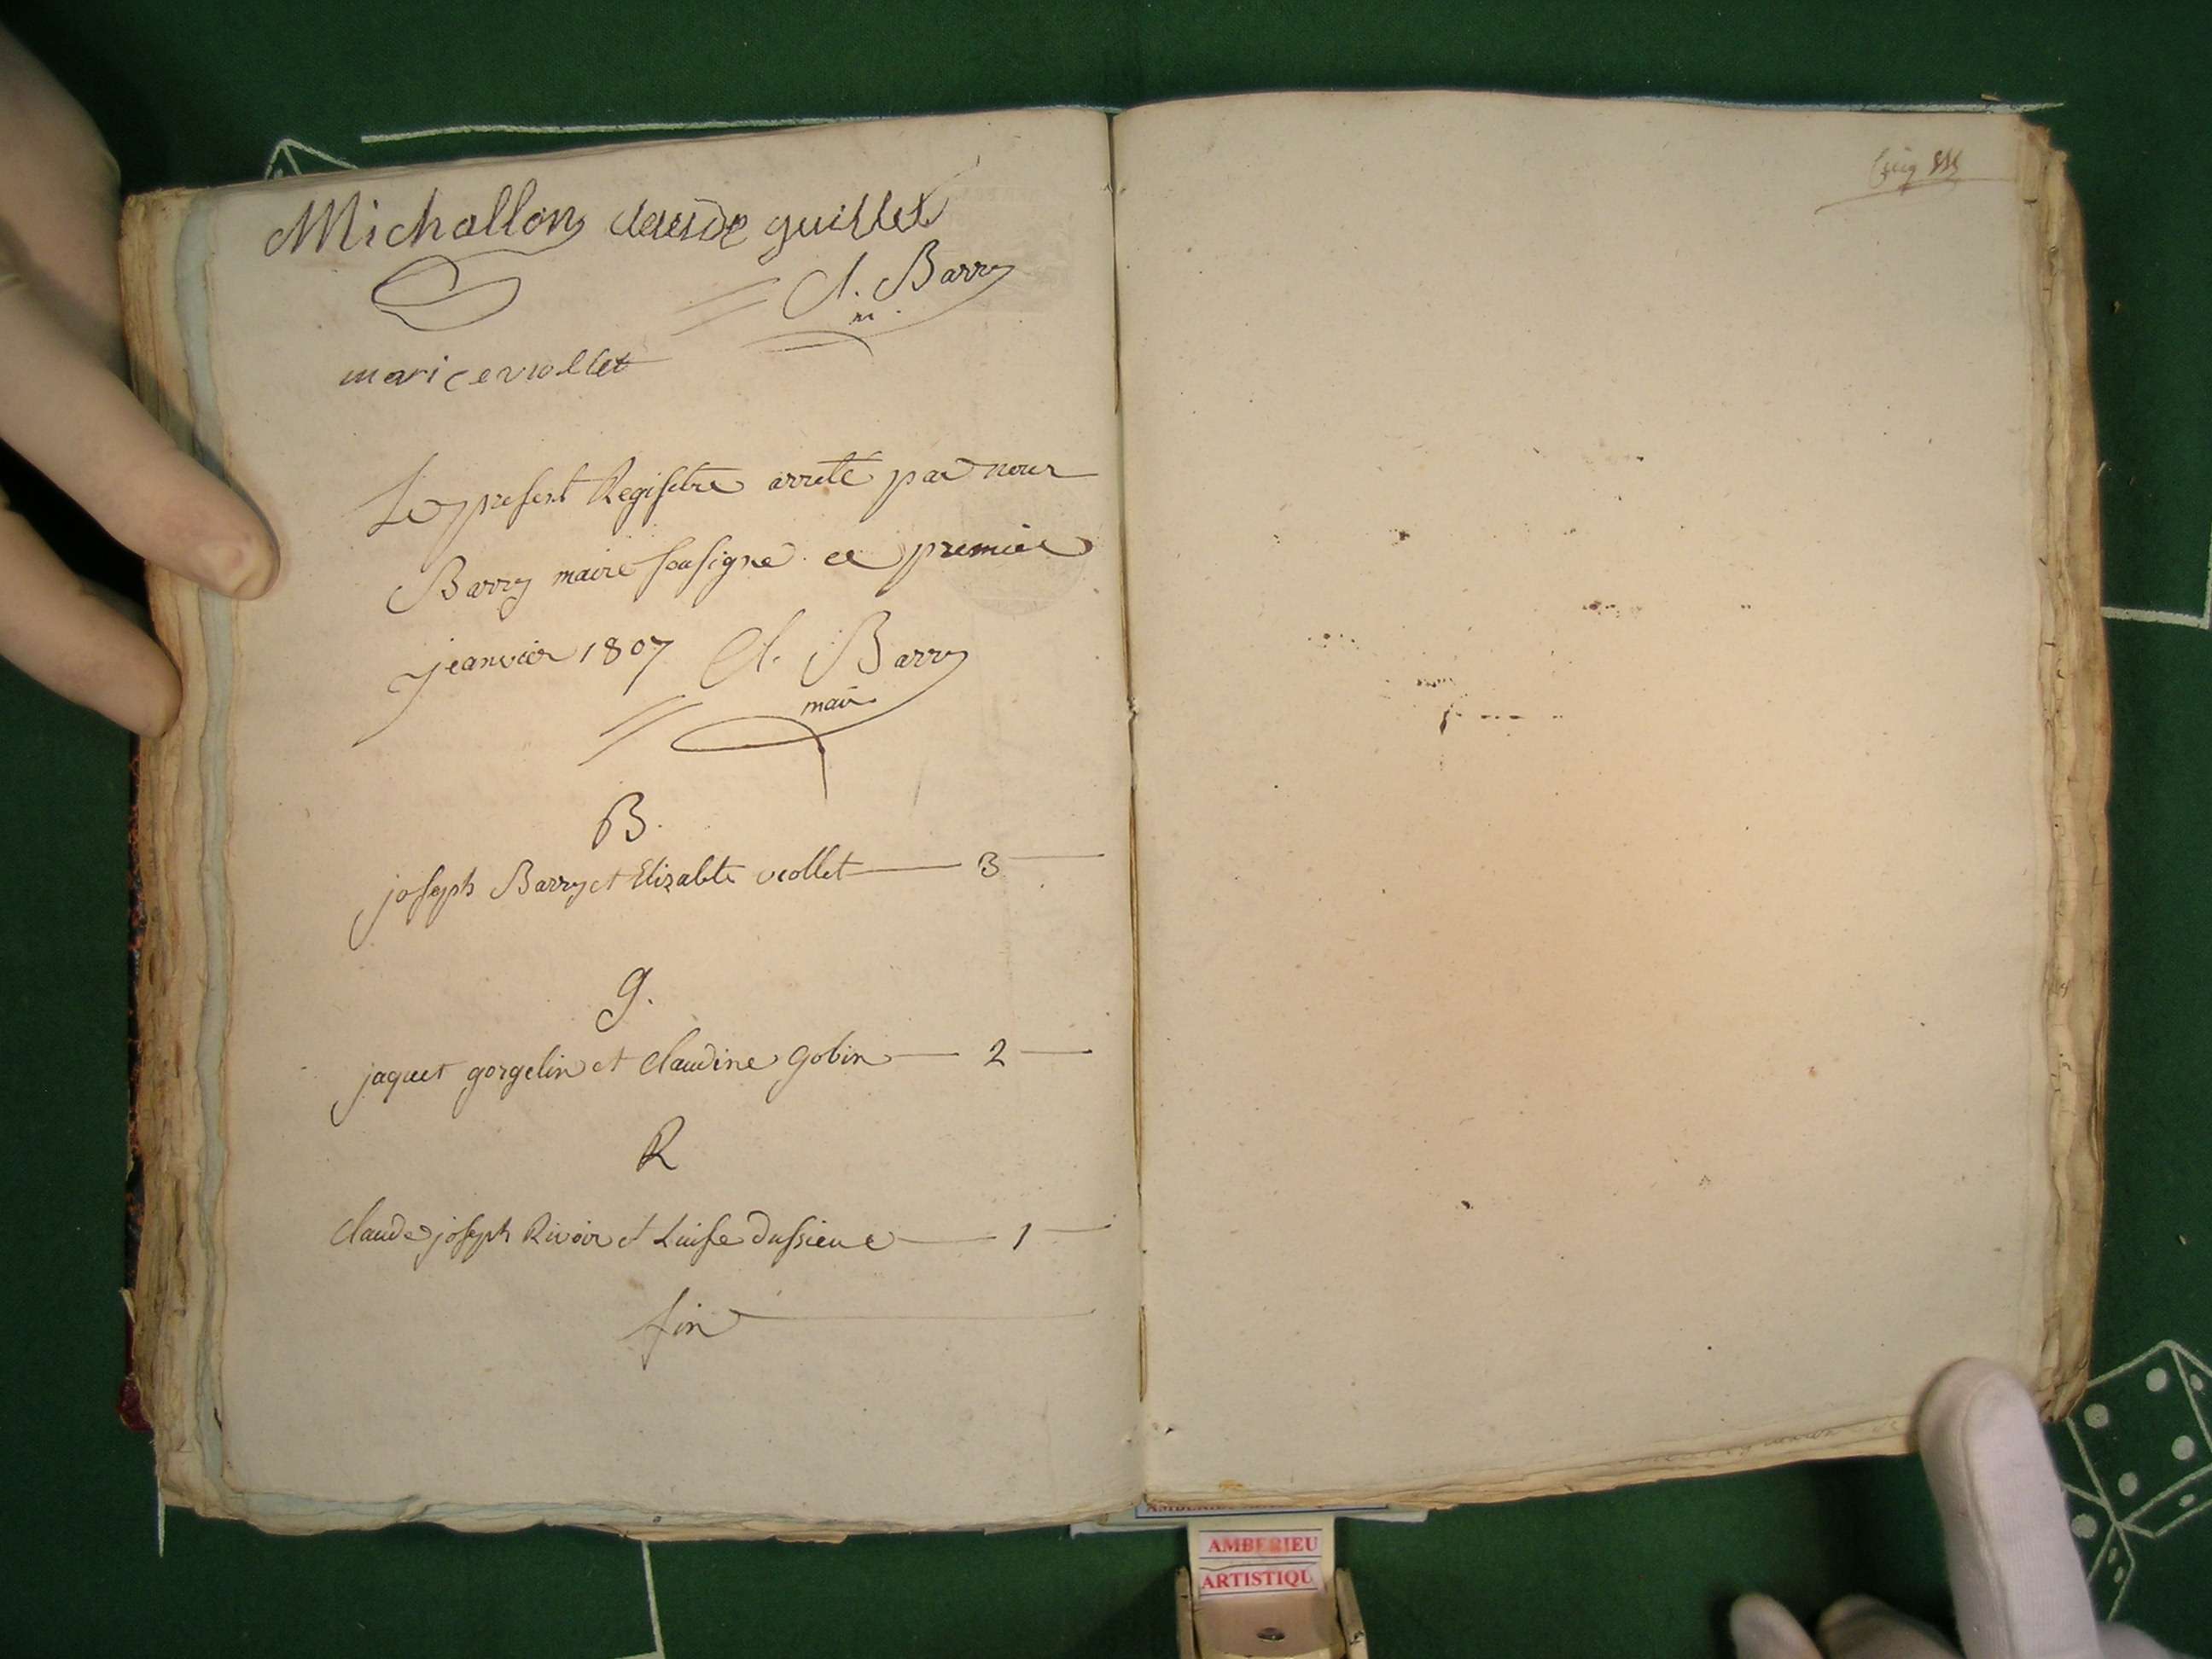 Michallon claude guillet
Cl. Barry
m.
marie viollet
Le present Registre arreté par nous
Barry maire sousigne ce premier
jeanvier 1807 Cl. Barry
maire
B.
joseph Barry et Elizabte viollet 3
g.
jaques gorgelin et Claudine gobin 2
R
Claude joseph Rivoir et Luise dussieue 1
fin
AMBERIEU
ARTISTIQU